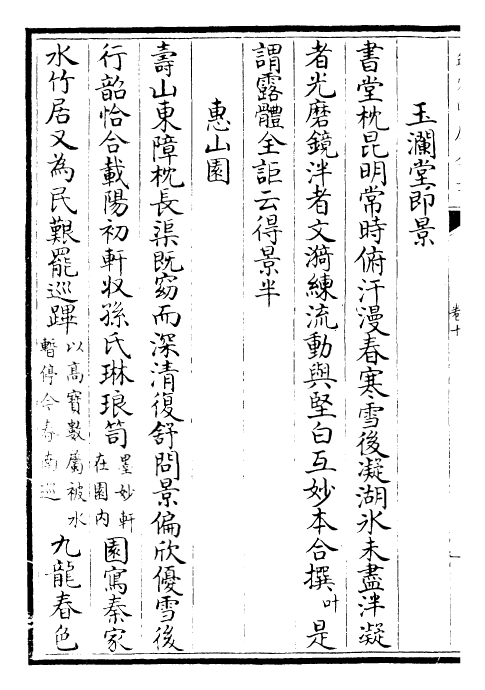 卷十
玉瀾堂即景
書堂枕昆明常時俯汗漫春寒雪後凝湖氷未盡泮凝
者光磨鏡泮者文漪練流動與堅白互妙本合撰叶是
謂露體全詎云得景半
惠山園
壽山東障枕長渠既窈而深清復舒問景偏欣優雪後
行韶恰合載陽初軒收孫氏琳琅笥墨妙軒在園内園寫秦家
水竹居又為民艱罷巡蹕以高寳數屬被水暫停今春南巡九龍春色